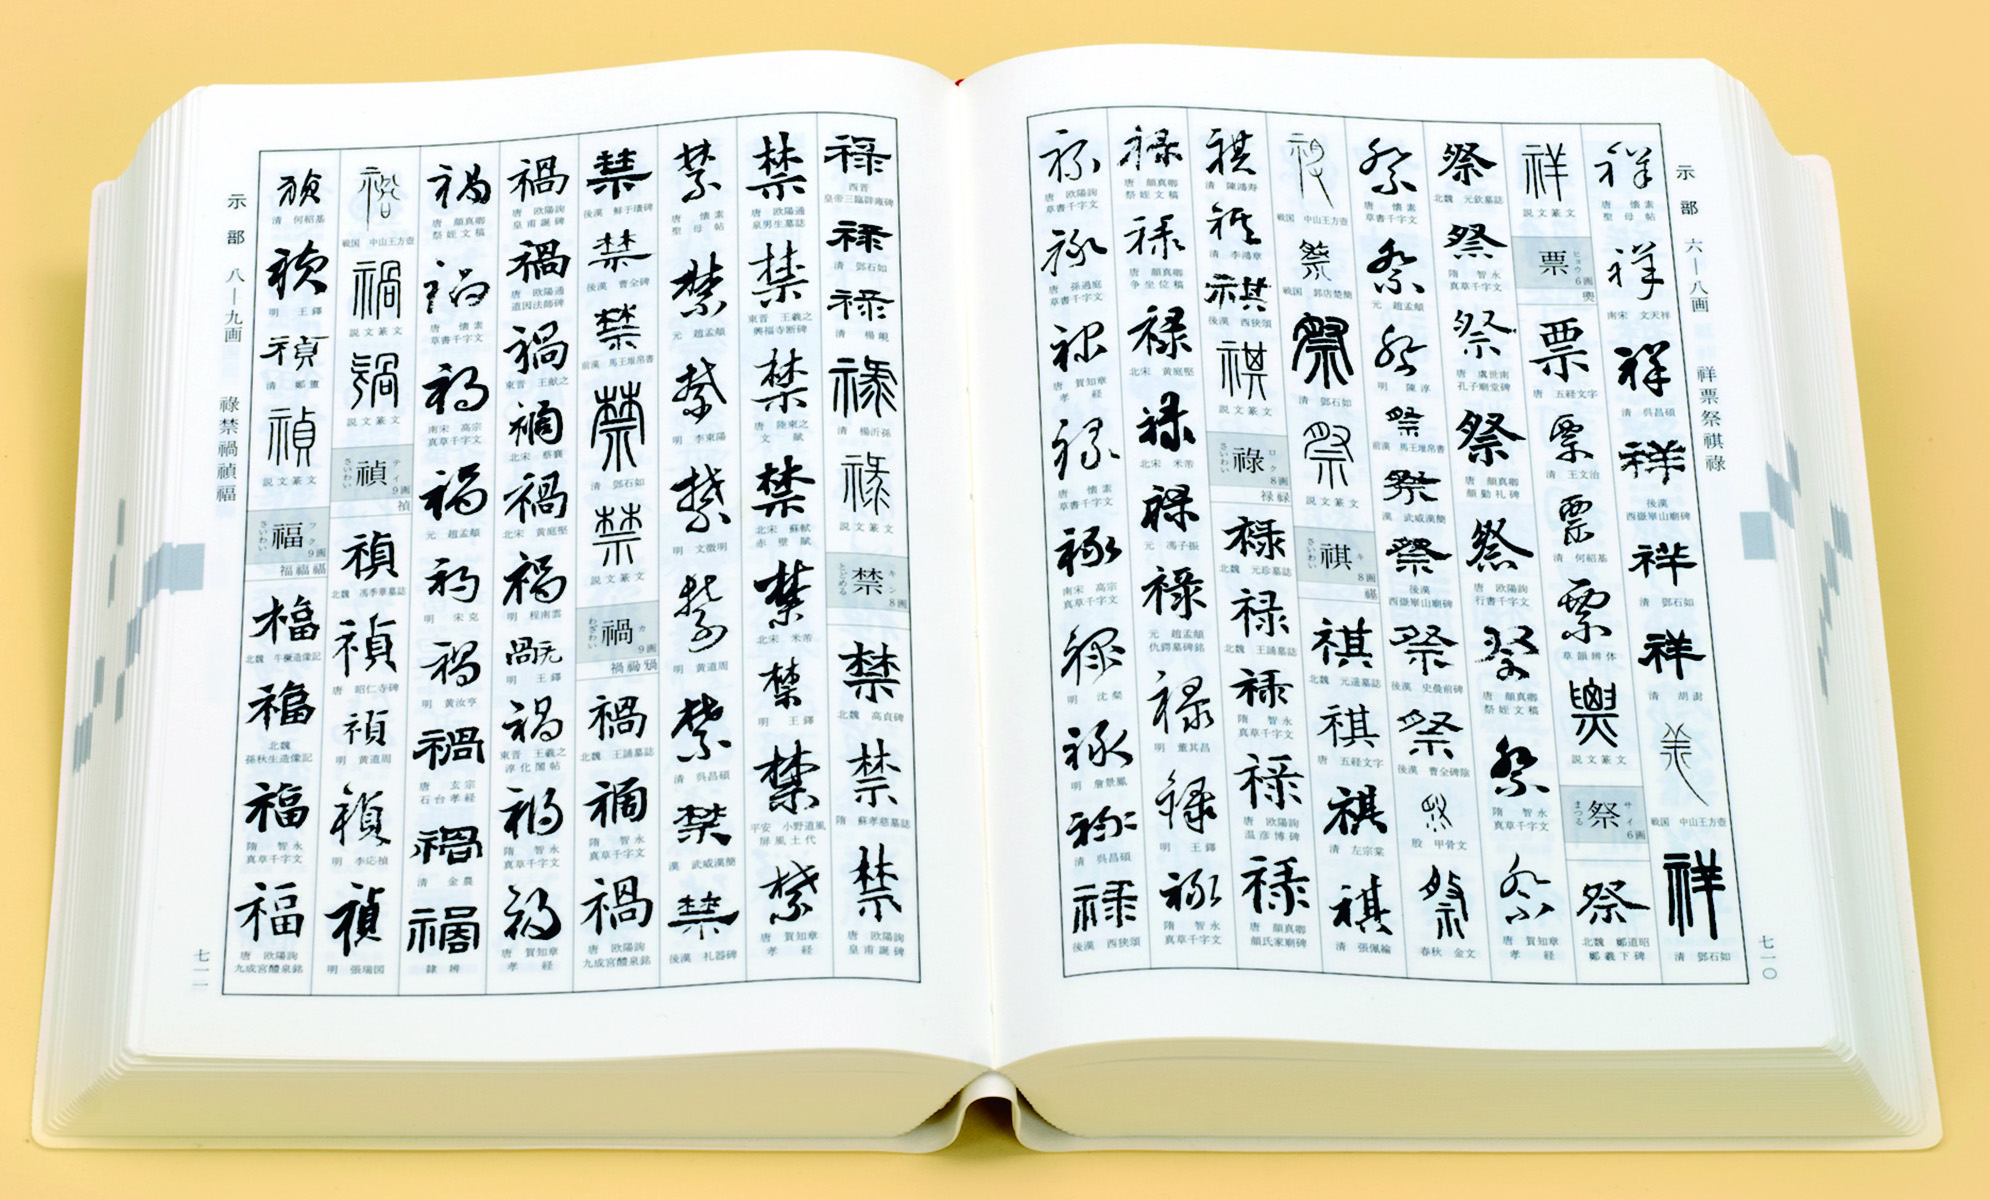 示部 六—八画 祥票祭祺祿
七一〇
祥
唐 懐素
聖母帖
祥
南宋 文天祥
祥
清 呉昌碩
祥
後漢
西嶽崋山廟碑
祥
清 鄧石如
祥
清 胡澍
戦国 中山王方壺
祥
清 鄧石如
祥
説文篆文
票
ヒョウ
6画
票
唐 五経文字
票
清 王文治
票
清 何紹基
票
草韻辨体
説文篆文
祭
サイ
まつる
6画
祭
北魏 鄭道昭
鄭羲下碑
祭
北魏 元欽墓誌
祭
隋 智永
真草千字文
祭
唐 虞世南
孔子廟堂碑
祭
唐 顔真卿
顔勤礼碑
祭
唐 欧陽詢
行書千字文
祭
唐 顔真卿
祭姪文稿
祭
隋 智永
真草千字文
祭
唐 賀知章
孝経
祭
唐 懐素
草書千字文
祭
元 趙孟頫
祭
明 陳淳
祭
前漢 馬王堆帛書
祭
漢 武威漢簡
祭
後漢
西嶽崋山廟碑
祭
後漢 史晨前碑
祭
後漢 曹全碑陰
祭
殷 甲骨文
祭
春秋 金文
戦国 中山王方壺
祭
戦国 郭店楚簡
祭
清 鄧石如
祭
説文篆文
祺
キ
さいわい
8画
祺
北魏 元遥墓誌
祺
唐 五経文字
祺
清 左宗棠
祺
清 張佩綸
祺
清 陳鴻寿
祺
清 李鴻章
祺
後漢 西狭頌
祺
説文篆文
祿
ロク
さいわい
8画
禄
北魏 元珍墓誌
禄
北魏 王誦墓誌
禄
隋 智永
真草千字文
禄
唐 欧陽詢
温彦博碑
禄
唐 顔真卿
顔氏家廟碑
禄
唐 顔真卿
祭姪文稿
禄
唐 顔真卿
争坐位稿
禄
北宋 黄庭堅
禄
北宋 米芾
禄
元 馮子振
禄
元 趙孟頫
仇鍔墓碑銘
禄
明 董其昌
禄
明 王鐸
禄
隋 智永
真草千字文
禄
唐 欧陽詢
草書千字文
禄
唐 孫過庭
草書千字文
禄
唐 賀知章
孝経
禄
唐 懐素
草書千字文
禄
南宋 高宗
真草千字文
禄
明 沈粲
禄
明 詹景鳳
禄
清 呉昌碩
禄
後漢 西狭頌
禄
西晋
皇帝三臨辟雍碑
禄
清 鄧石如
禄
清 楊峴
禄
清 楊沂孫
禄
説文篆文
禁
キン
とどめる
8画
禁
北魏 高貞碑
禁
隋 蘇孝慈墓誌
禁
唐 欧陽詢
皇甫誕碑
禁
唐 欧陽通
泉男生墓誌
禁
東晋 王羲之
興福寺断碑
禁
唐 陸柬之
文賦
禁
北宋 蘇軾
赤壁賦
禁
北宋 米芾
禁
明 王鐸
禁
平安 小野道風
屏風土代
禁
唐 賀知章
孝経
禁
唐 懐素
聖母帖
禁
元 趙孟頫
禁
明 李東陽
禁
明 文徴明
禁
明 黄道周
禁
清 呉昌碩
禁
漢 武威漢簡
禁
後漢 礼器碑
禁
後漢 鮮于璜碑
禁
後漢 曹全碑
禁
前漢 馬王堆帛書
禁
清 鄧石如
禁
説文篆文
禍
カ
わざわい
9画
禍
北魏 王誦墓誌
禍
隋 智永
真草千字文
禍
唐 欧陽詢
九成宮醴泉銘
禍
唐 欧陽詢
皇甫誕碑
禍
唐 欧陽通
道因法師碑
禍
東晋 王献之
禍
北宋 蔡襄
禍
北宋 黄庭堅
禍
明 程南雲
明 王鐸
禍
東晋 王羲之
淳化閣帖
禍
隋 智永
真草千字文
禍
唐 賀知章
孝経
禍
唐 顔真卿
祭姪文稿
禍
唐 懐素
草書千字文
禍
南宋 高宗
真草千字文
禍
元 趙孟頫
禍
明 朱克
禍
明 黄汝亨
禍
唐 玄宗
石台孝経
禍
清 金農
禍
隷辨
戦国 中山王方壺
禍
説文篆文
説文篆文
禎
テイ
さいわい
9画
禎
禎
北魏 馮季華墓誌
禎
唐 昭仁寺碑
禎
明 黄道周
禎
明 李応禎
禎
明 張瑞図
禎
清 何紹基
禎
明 王鐸
禎
清 鄭簠
禎
説文篆文
福
フク
さいわい
9画
福
北魏 牛橛造像記
福
北魏
孫秋生造像記
福
隋 智永
真草千字文
福
唐 欧陽詢
九成宮醴泉銘
示部 八—九画 祿禁禍禎福
七一一